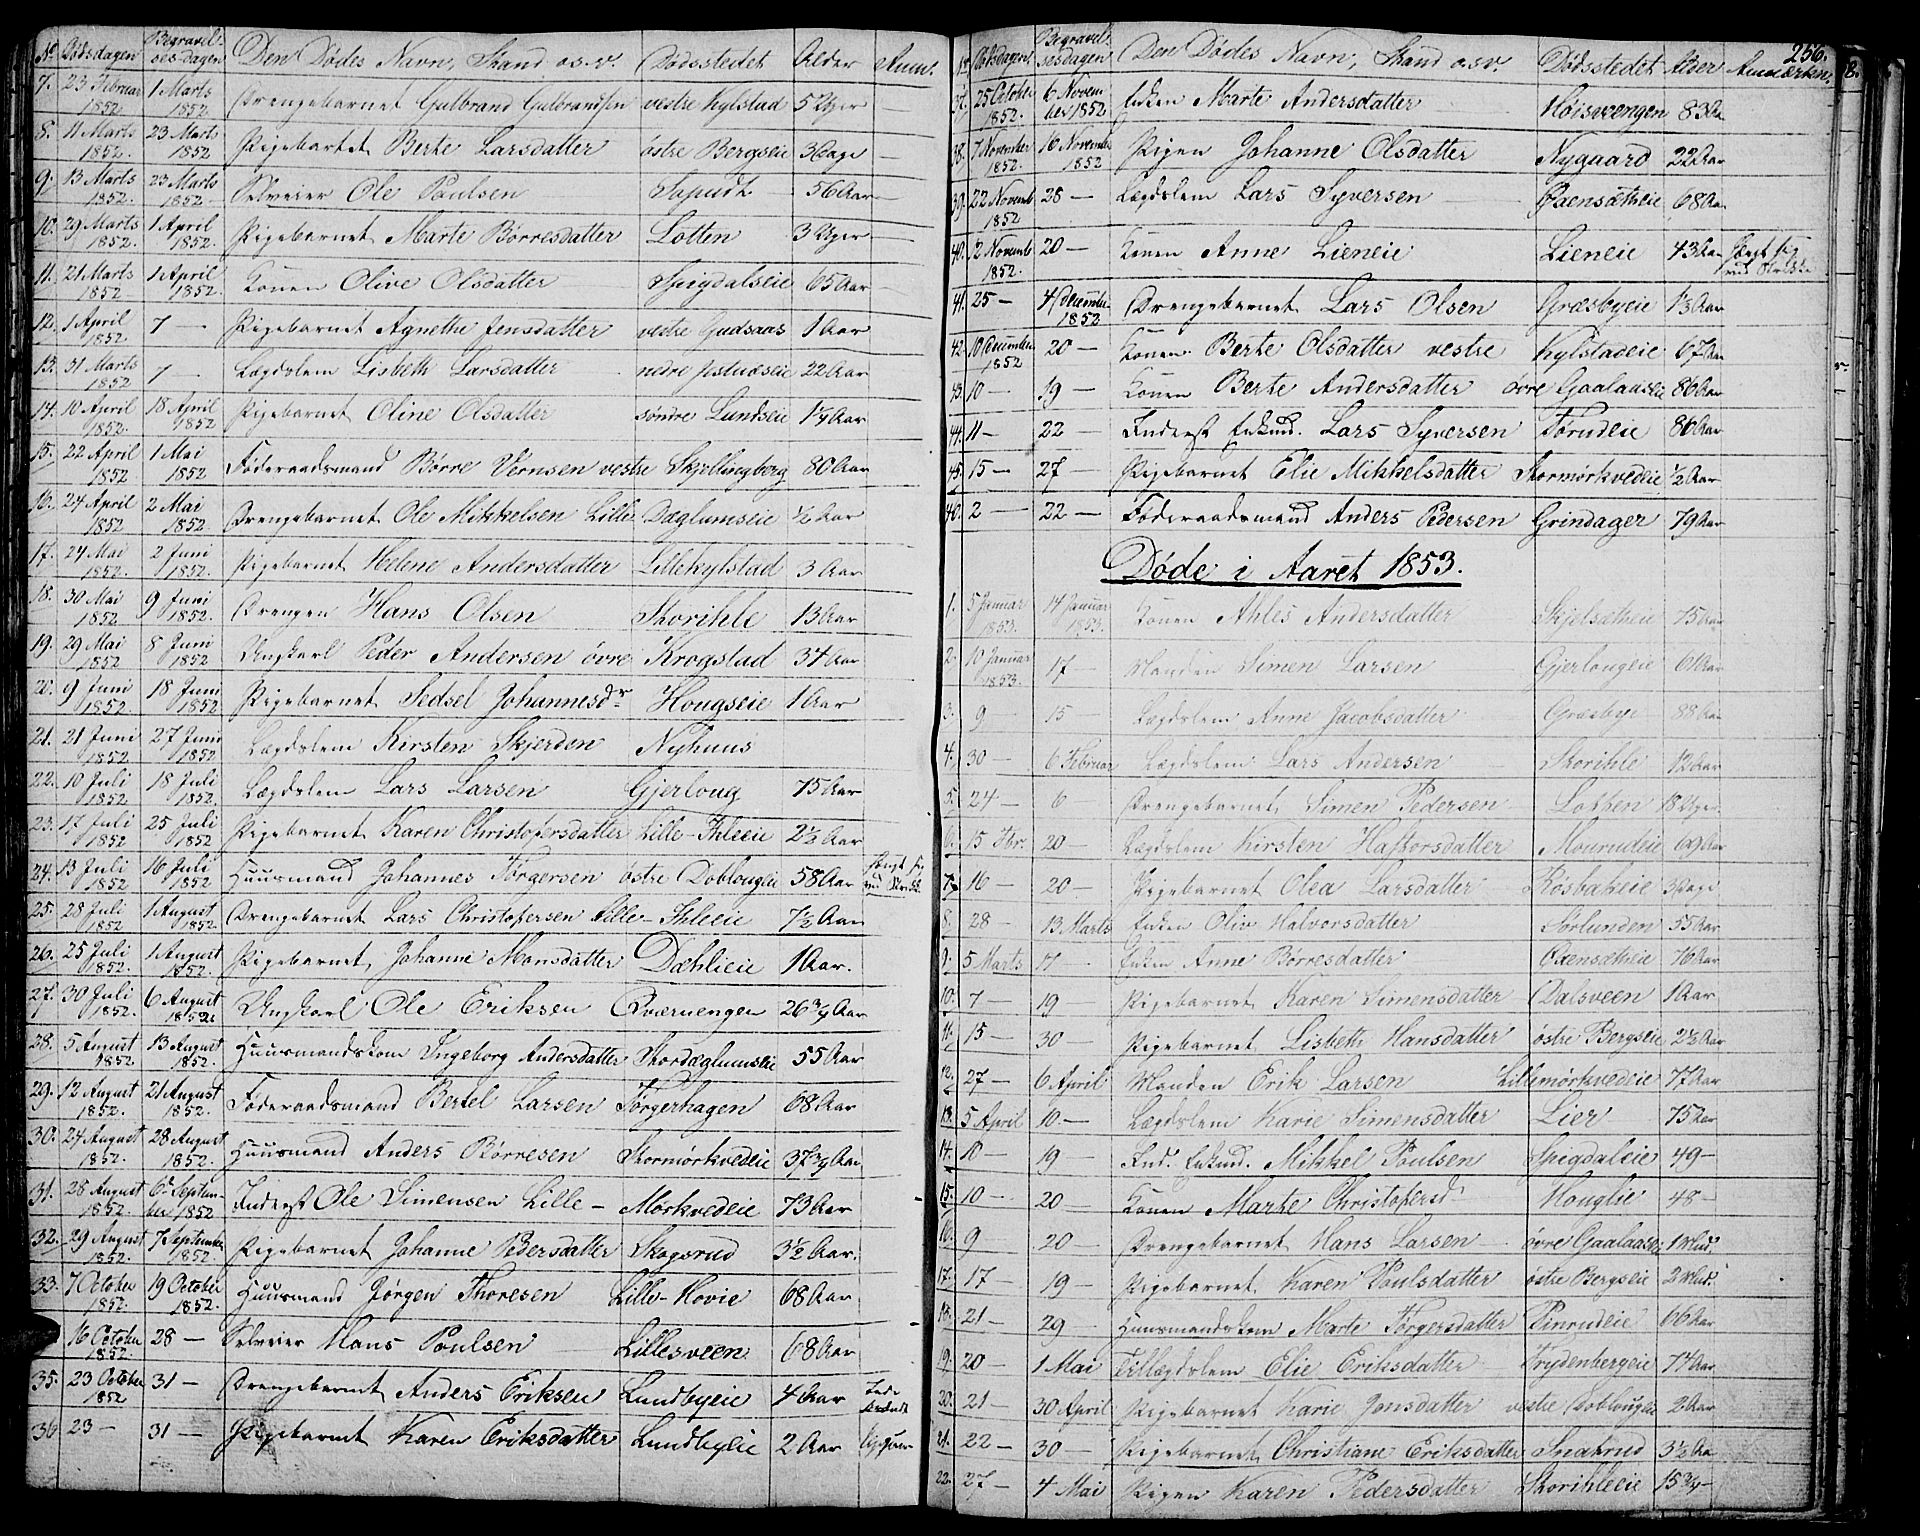 No Dødsdagen Begravelsesdagen Den Dødes Navn, Stand o.s.v. Dødsstedet Alder Anm.
7. 23 Februar 1852 1 Marts 1852 Drengebarnet Gulbrand Gulbrandsen vestre Kylstad 5 Uger —
8. 11 Marts 1852. 23 Marts 1852 Pigebarnet Berte Larsdatter østre Bergseie 3 Dage —
9. 13 Marts 1852. 23 Marts 1852. Selveier Ole Poulsen 56 Aar —
10. 29 Marts 1852. 1 April 1852. Pigebarnet Marte Børresdatter Lotten 3 Uger —
11. 21 Marts 1852 1 April 1852. Konen Olive Olsdatter Spigdalseie 65 Aar —
12. 1 April 1852. 7 — Pigebarnet Agnethe Jensdatter vestre Gudsaas 1 Aar
13. 31 Marts 1852 7 — Lægdslem Lisbeth Larsdatter nedre 22 Aar
14. 10 April 1852. 18 April 1852 Pigebarnet Oline Olsdatter søndre Lundseie 1¼ Aar
15. 22 April 1852 1 Mai 1852 Føderaadsmand Børre Vernsen vestre Skjellingberg 80 Aar
16. 24 April 1852 2 Mai 1852. Drengebarnet Ole Mikkelsen Lille Dæglumseie ½ Aar
17. 24 Mai 1852. 2 Juni 1852. Pigebarnet Helene Andersdatter Lillekylstad 3 Aar
18. 30 Mai 1852. 9 Juni 1852. Drengen Hans Olsen Skorihle 13 Aar
19. 29 Mai 1852 8 Juni 1852 Ungkarl Peder Andersen øvre Krogstad 34 Aar
20. 9 Juni 1852. 18 Juni 1852 Pigebarnet Sedsel Johannesdr Hougseie 1 Aar
21. 21 Juni 1852 27 Juni 1852 Lægdslem Kirsten Skjerden Nyhuus
22. 10 Juli 1852 18 Juli 1852. Lægdslem Lars Larsen Gjerloug 75 Aar
23. 17 Juli 1852 25 Juli 1852 Pigebarnet Karen Christofersdatter Lille-Ihleeie 2½ Aar
24. 13 Juli 1852 16 Juli 1852 Huusmand Johannes Tørgersen østre Doblougeie 58 Aar
25. 28 Juli 1852 1 August 1852. Drengebarnet Lars Christofersen Lille-Ihleeie 7½ Aar
26. 25 Juli 1852. 1 August 1852. Pigebarnet Johanne Monsdatter Dæhlieie 1 Aar.
27. 30 Juli 1852. 6 August 1852 Ungkarl Ole Eriksen Qværnengen 26¾ Aar
28. 5 August 1852. 13 August 1852. Huusmandskone Ingeborg Andersdatter Stordæglumseie 55 Aar
29. 12 August 1852. 21 August 1852. Føderaadsmand Bertel Larsen Tørgerhagen 68 Aar
30. 24 August 1852. 28 August 1852. Huusmand Anders Børresen Stormørkvedeie 37¾ Aar
31. 28 August 1852. 6te September 1852 Inderst Ole Simensen Lille- Mørkvedeie 73 Aar
32. 29 August 1852. 7 September 1852. Pigebarnet Johanne Pedersdatter Skogsrud 3½ Aar.
33. 7 October 1852. 19 October 1852. Huusmand Jørgen Thoresen Lille-Hovie 68 Aar
16 October 1852. 28 — Selveier Hans Poulsen Lillesveen 68 Aar
35. 23 October 1852 31 — Drengebarnet Anders Eriksen Lundbyeie 4 Aar
36 23 — 31 — Pigebarnet Karen Eriksdatter Lundbyeie 2 Aar
256.
No Dødsdagen Begravelsesdagen Den Dødes Navn, Stand o.s.v. Dødsstedet Alder Anmærkn.
37. 25 October 1852. 6 November 1852 Enken Marte Andersdatter Høisveengen 83 Aar
38. 7 November 1852. 16 November 1852 Pigen Johanne Olsdatter Nygaard 22 Aar
39. 22 Novemb 1852 28 — Lægdslem Lars Syversen Oxensætheie 68 Aar
40. 2 Novemb 1852. 20 — Konen Anne Lieneie Lieneie 43 Aar hængt sig
41. 25 — 4 December 1852 Drengebarnet Lars Olsen Græsbyeie 1½ Aar
42. 10 December 1852 20 — Konen Berte Olsdatter vestre Kylstadeie 67 Aar
43. 10 — 19 — Konen Berte Andersdatter øvre Gaalaaseie 86 Aar
44. 11 — 22 — Inderst Enkmd. Lars Syversen Torudeie 86 Aar
45. 15 — 27 — Pigebarnet Elie Mikkelsdatter Stormørkvedeie ½ Aar
46. 2 — 22 — Føderaadsmand Anders Pedersen Grindager 79 Aar
Døde i Aaret 1853.
1. 5 Januar 1853. 14 Januar 1853. Konen Ahles Andersdatter Skjelsætheie 75 Aar
2. 10 Januar 1853. 17 — Manden Simen Larsen Gjerlougeie 61 Aar
3. 9 — 15 — Lægdslem Anne Jacobsdatter Græsbye 88 Aar
4. 30 — 6 Februar Lægdslem Lars Andersen Skorihle 12 Aar
5. 24 — 6 — Drengebarnet Simen Pedersen Lotten 18 Uger
6. 15 Fbr. 20 — Lægdslem Kirsten Haftorsdatter Mourudeie 69 Aar
7. 16 — 20 — Pigebarnet Olea Larsdatter Røsbakeie 3 Dage
8. 28 — 13 Marts Enken Oliv Halvorsdatter Sørlunden 55 Aar
9. 5 Marts 17 — Enken Anne Børresdatter Oxensætheie 76 Aar
10. 7 — 19 — Pigebarnet Karen Simensdatter Dalsveen 1 Aar
11. 15 — 30 — Pigebarnet Lisbeth Hansdatter østre Bergseie 2½ Aar
12. 27 — 6 April Manden Erik Larsen Lillemørkvedeie 77 Aar
13. 5 April 10. — Lægdslem Karie Simensdatter Lier 75 Aar
14. 10 — 19 — Ind. Enkmd. Mikkel Poulsen Spigdaleie 49 —
15. 10 — 20 — Konen Marte Christofersd. Houglie 48 —
16. 9 20 — Drengebarnet Hans Larsen øvre Gaalaaseie 1 Md.
17. 17 — 19 — Pigebarnet Karen Poulsdatter østre Bergseie 2 Md.
18. 21 — 29 — Huusmandskone Marte Tørgersdatter Finrudeie 66 Aar
19. 20 — 1 Mai Lægdslem Elie Eriksdatter Frydenbergeie 74 Aar
20. 21 — 30 April Pigebarnet Karie Jonsdatter vestre Dobloug 2 Aar
21. 22 — 30 — Pigebarnet Christiane Eriksdatter Snakrud 3½ Aar
22. 27 — 4 Mai Pigen Karen Pedersdatter Skorihleeie 15¾ —